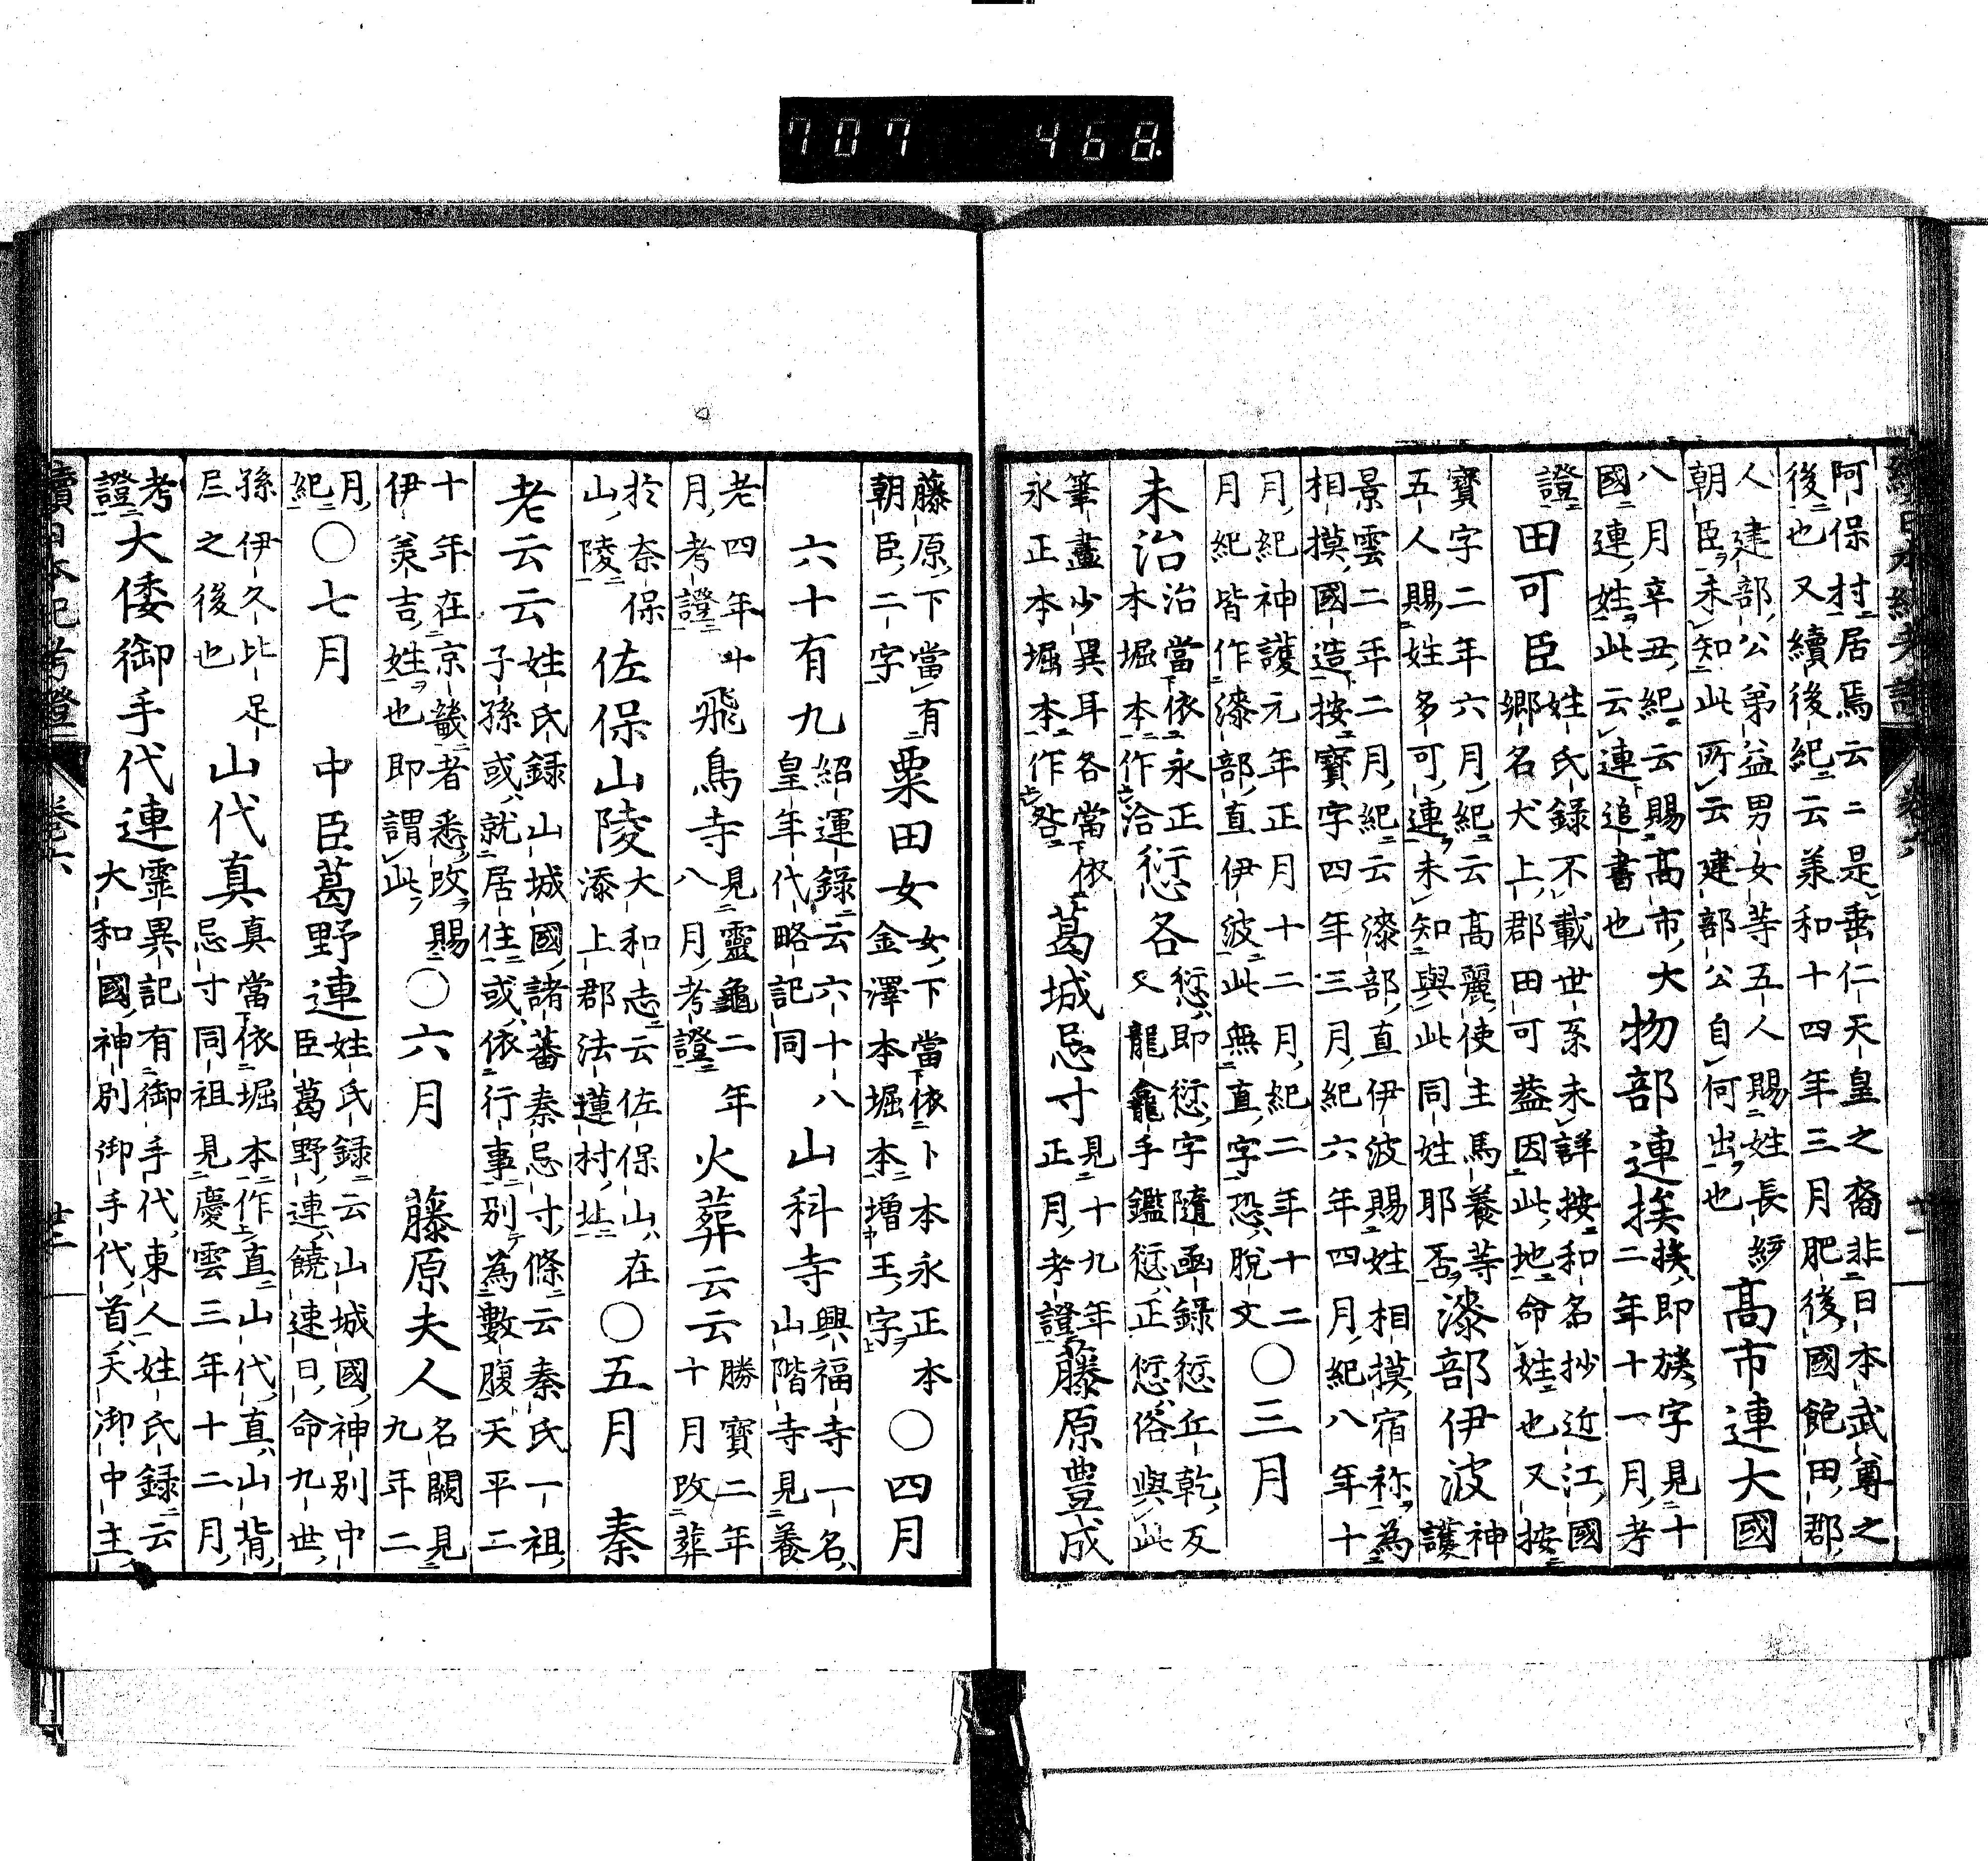 707 468.
續日本紀考證 卷六 廿二
阿保村居焉云々是垂仁天皇之裔非日本武尊之
後也又續後紀云美和十四年三月肥後國飽田郡
人建部公弟益男女等五人賜姓長統
朝臣未知此所云建部公自何出也
高市連大國
八月辛丑紀云賜高市大
國連姓此云連追書也
物部連挨 挨即族字見十
二年十一月考
證
田可臣 姓氏録不載世系未詳按和名抄近江國
鄉名犬上郡田可葢因此地命姓也又按
寶字二年六月紀云高麗使主馬養等
五人賜姓多可連未知與此同姓耶否
漆部伊波 神護
景雲二年二月紀云漆部直伊波賜姓相摸宿祢為
相摸國造按寶字四年三月紀六年四月紀八年十
月紀神護元年正月十二月紀二年十二
月紀皆作漆部直伊波此無直字恐脫文
○三月
未治 治當依永正
本堀本作治
愆各 愆即愆字隨函錄愆丘乾反
又龍龕手鑑愆正愆俗與此
筆畫少異耳各當依
永正本堀本作咎
葛城忌寸 見十九年
正月考證
藤原豊成
藤原下當有
朝臣二字
粟田女 女下當依卜本永正本
金澤本堀本增王字
○四月
六十有九 紹運錄云六十八
皇年代略記同
山科寺 興福寺一名
山階寺見養
老四年十
月考證
飛鳥寺 見靈龜二年
八月考證
火葬云云 勝寶二年
十月改葬
於奈保
山陵
佐保山陵 大和志云佐保山在
添上郡法蓮村址
○五月
秦
老云云 姓氏録山城國諸蕃秦忌寸條云秦氏一祖
子孫或就居住或依行事別為數腹天平二
十年在京畿者悉改賜
伊美吉姓也即謂此
○六月
藤原夫人 名闕見
九年二
月
紀
○七月
中臣葛野連 姓氏録云山城國神別中
臣葛野連饒速日命九世
孫伊久比足
尼之後也
山代真 真當依堀本作直山代直山背
忌寸同祖見慶雲三年十二月
考
證
大倭御手代連 霊異記有御手代東人姓氏録云
大和國神別御手代首天御中主
續日本紀考證 卷六 廿三